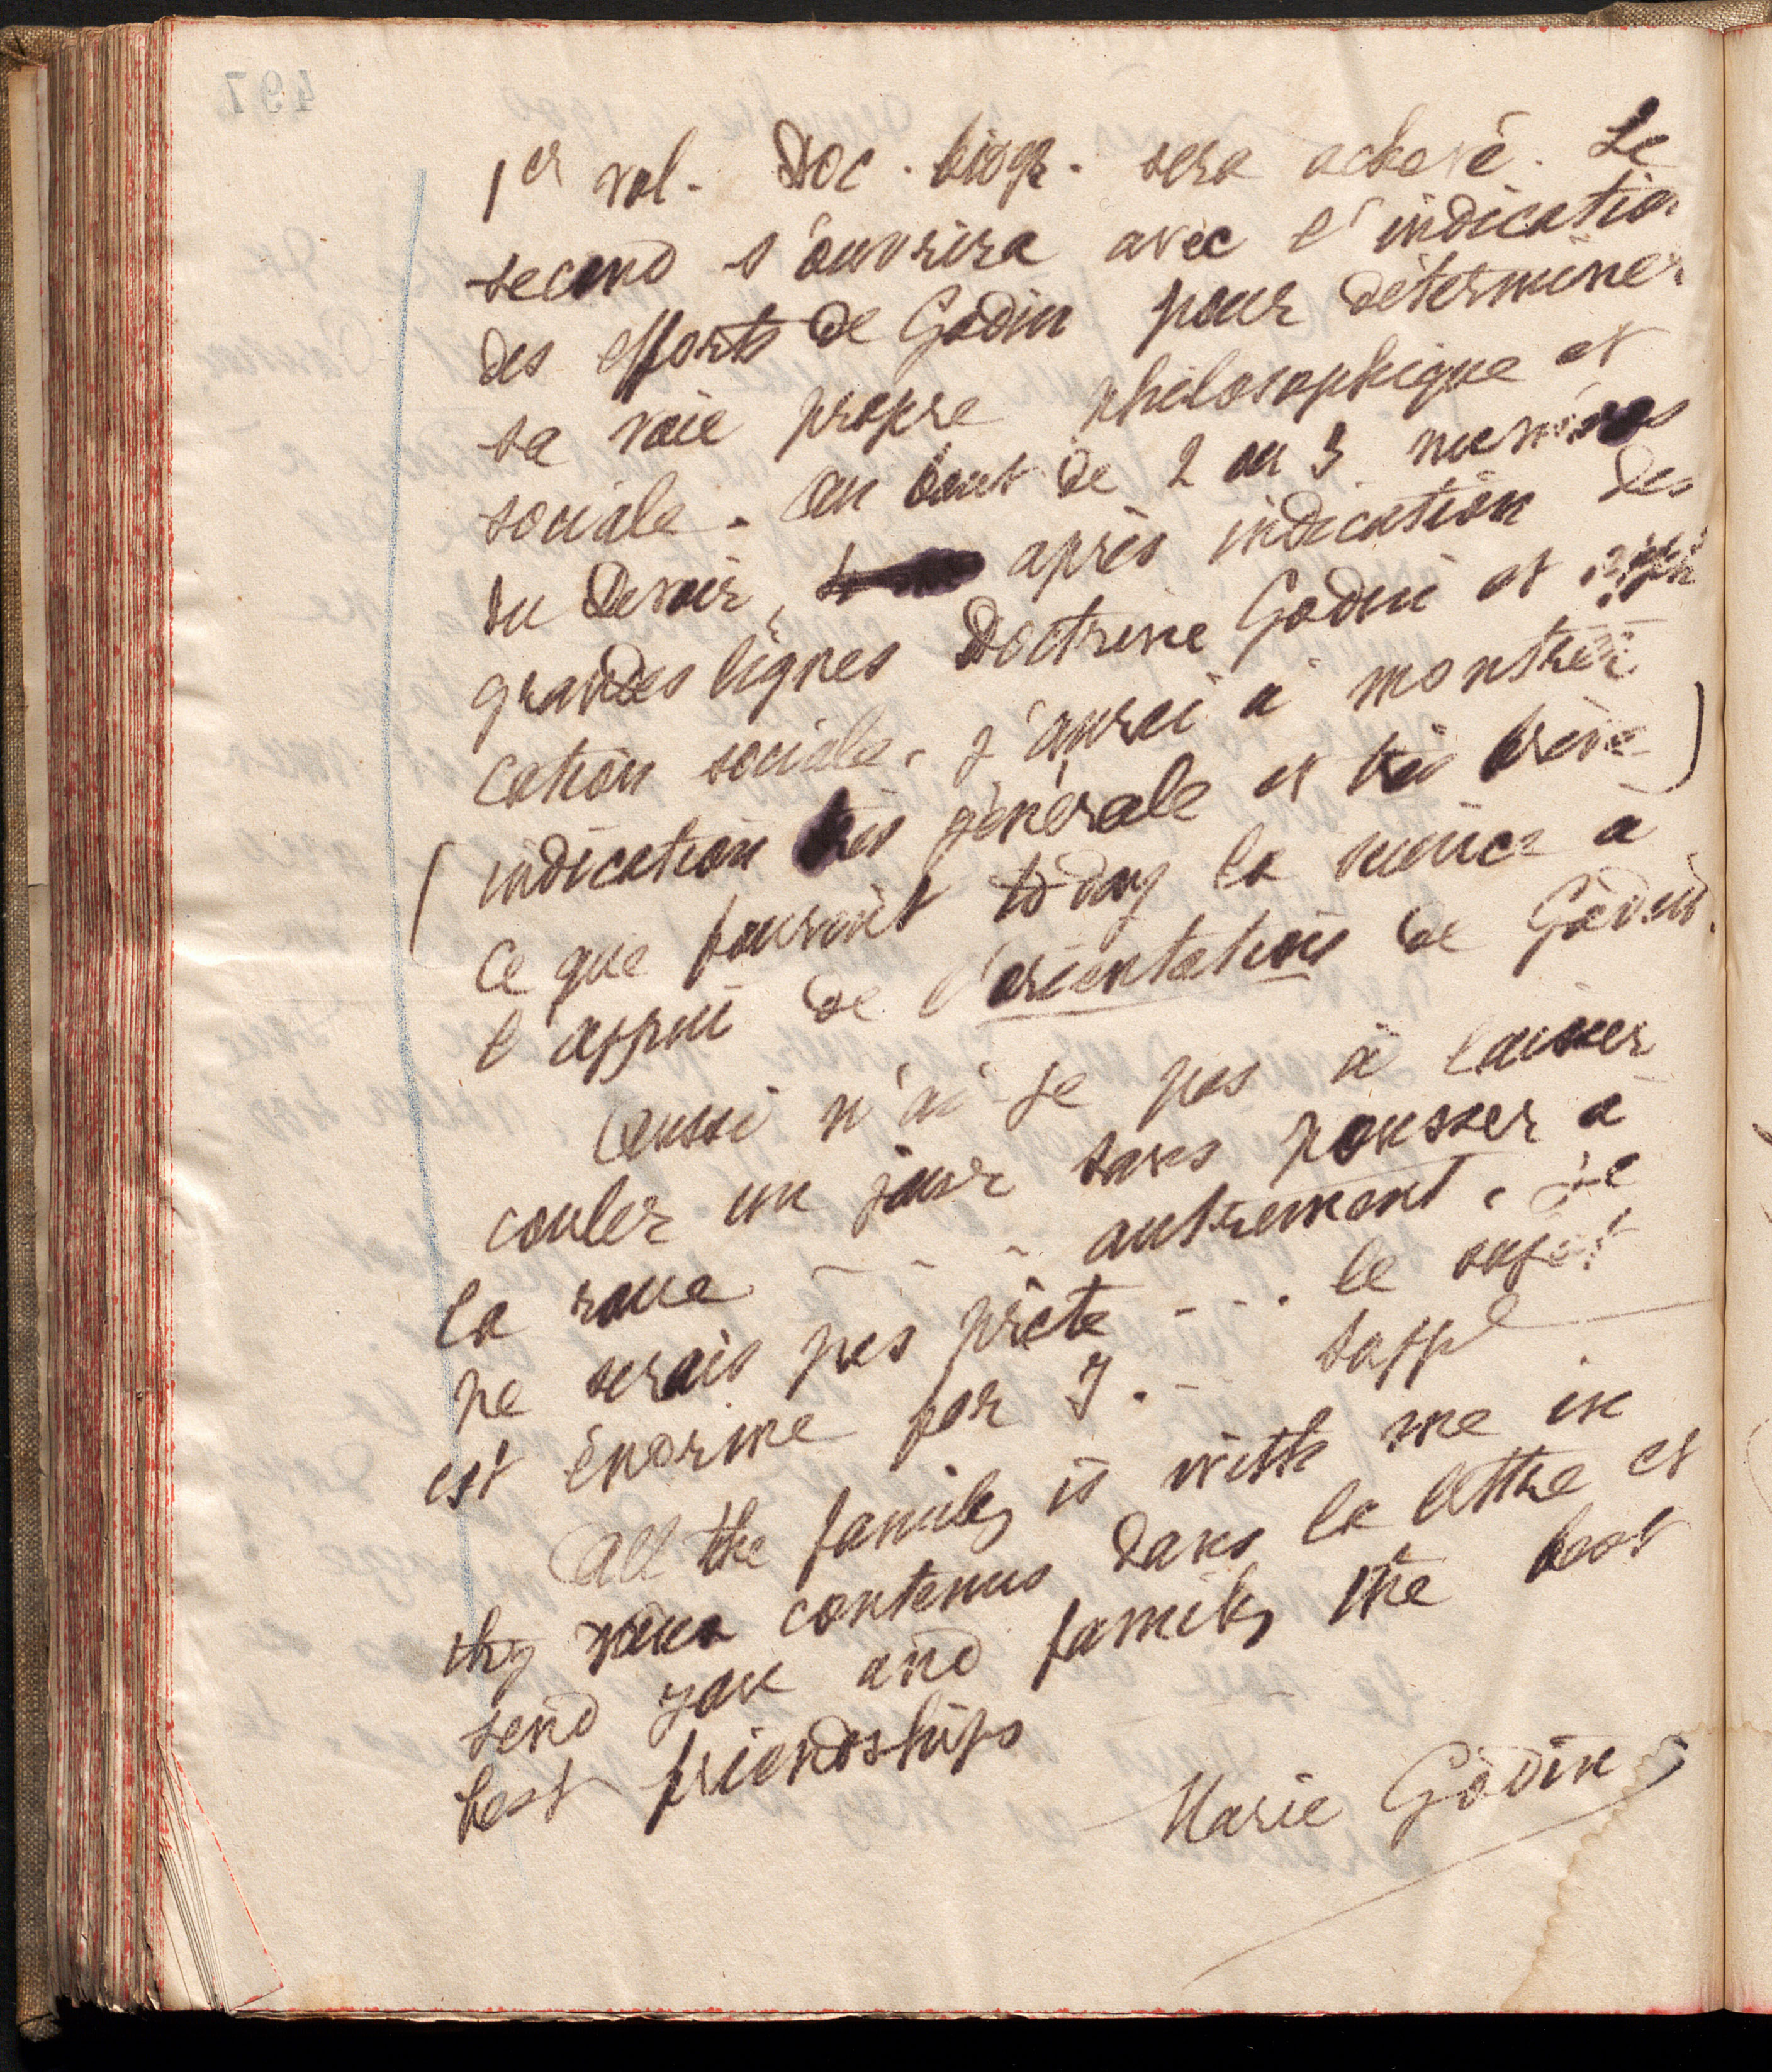 497
1er vol. Doc. biogr. sera achevé. Le
second s'ouvrira avec l'indication
des efforts de Godin pour déterminer
sa voie propre philosophique et
sociale. Au bout de 2 ou 3 numéros
du Devoir, après indication des
grandes lignes Doctrine Godin et
cation sociale. J'aurai à montrer
(indication très générale et très brève)
ce que fournit to day la science à
l'appui de l'orientation de Godin.
Aussi n'ai-je pas à laisser
couler un jour sans pousser à
la roue - - - - autrement, je
ne serais pas prête - - . le sujet
est énorme per I. -
All the family is with me in
thy vœux contenus dans la lettre et
send you and family the best
best friendships
Marie Godin